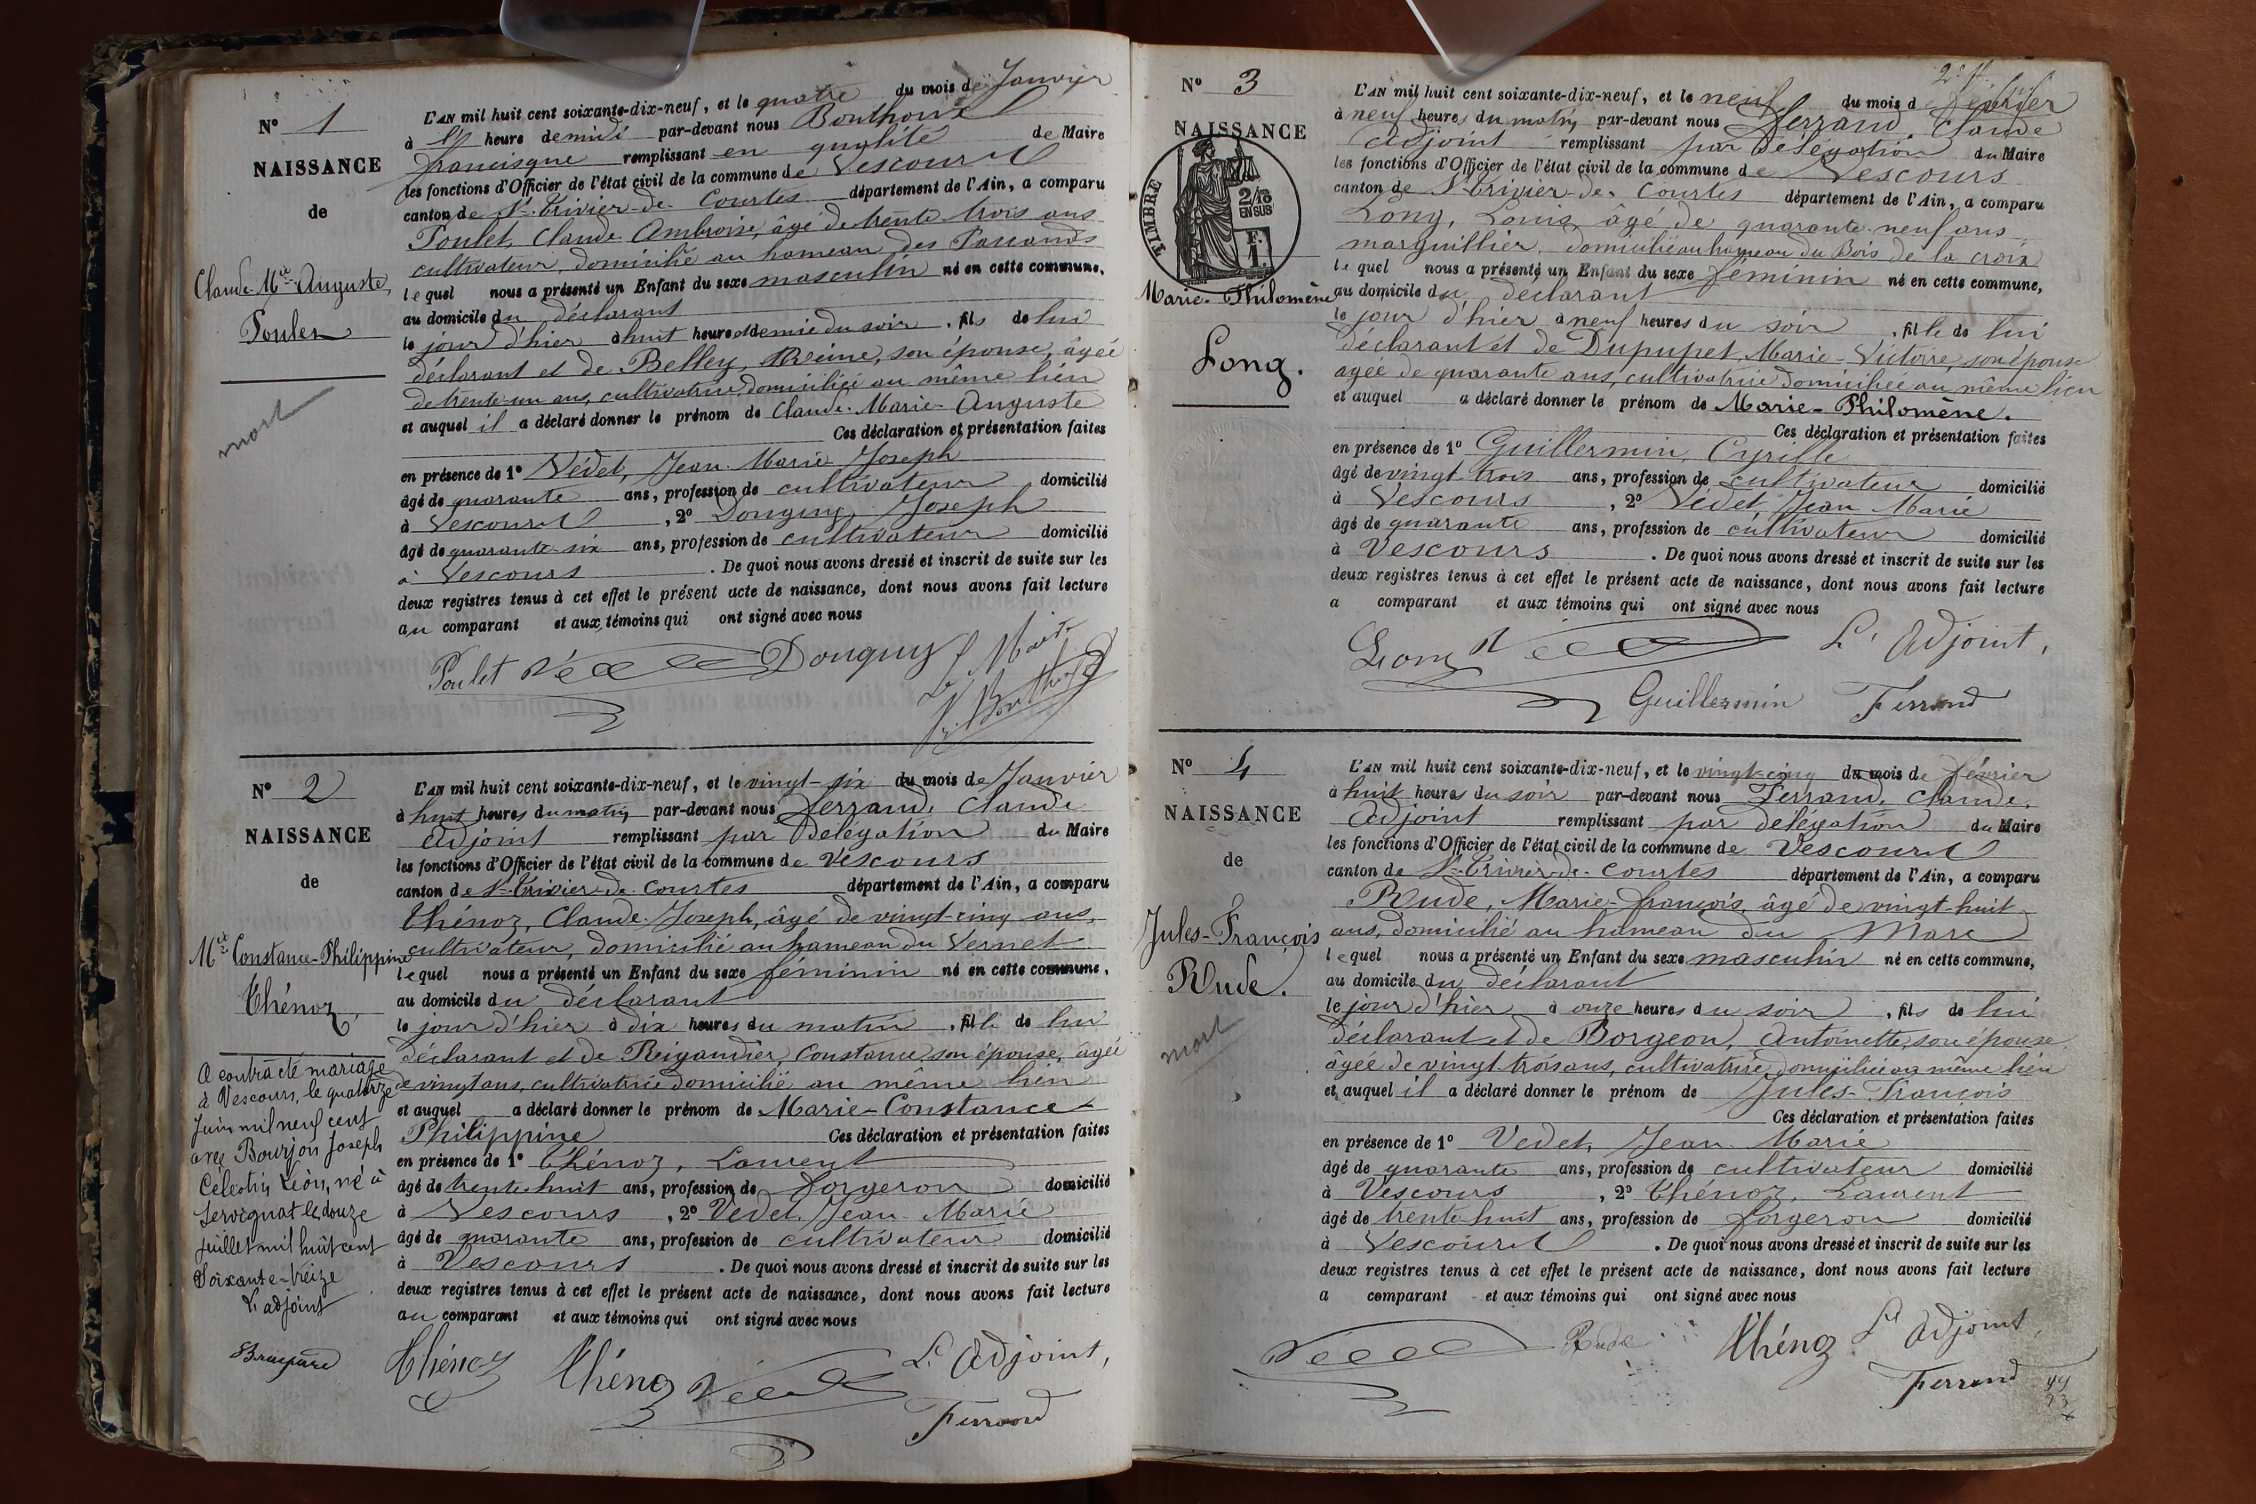 N° 1
NAISSANCE
de
Claude Mie Auguste
Poulet
mort
L'AN mil huit cent soixante-dix-neuf, et le quatre du mois de Janvier
à heure de midi par-devant nous Bouthoux
francisque remplissant en qualité de Maire
les fonctions d'Officier de l'état civil de la commune de Vescours
canton de St Trivier-de-Courtes département de l'Ain, a comparu
Poulet, Claude Ambroise, âgé de trente trois ans
cultivateur, domicilié au hameau des
lequel nous a présenté un Enfant du sexe masculin né en cette commune,
au domicile du déclarant
le jour d'hier à huit heures et demie du soir, fils de lui
déclarant et de Belley, Reine, son épouse, âgée
de trente-un ans, cultivatrice, domiciliée au même lieu
et auquel il a déclaré donner le prénom de Claude-Marie-Auguste
Ces déclaration et présentation faites
en présence de 1° Védet, Jean Marie Joseph
âgé de quarante ans, profession de cultivateur domicilié
à Vescours, 2° Donguy, Joseph
âgé de quarante-six ans, profession de cultivateur domicilié
à Vescours. De quoi nous avons dressé et inscrit de suite sur les
deux registres tenus à cet effet le présent acte de naissance, dont nous avons fait lecture
au comparant et aux témoins qui ont signé avec nous
Poulet Donguy J Le Maire
N° 2
NAISSANCE
de
Mie Constance-Philippine
Thénoz
A contracté mariage
à Vescours, le quatorze
Juin mil neuf cent
avec Bourjon Joseph
Célestin Léon, né à
Servignat le douze
juillet mil huit cent
soixante-treize
L'adjoint
L'AN mil huit cent soixante-dix-neuf, et le vingt-six du mois de Janvier
à huit heures du matin par-devant nous Ferrand, Claude
adjoint remplissant par délégation du Maire
les fonctions d'Officier de l'état civil de la commune de Vescours
canton de St Trivier-de-Courtes département de l'Ain, a comparu
Thénoz, Claude-Joseph, âgé de vingt-cinq ans,
cultivateur, domicilié au hameau du Vernet
lequel nous a présenté un Enfant du sexe féminin né en cette commune,
au domicile du déclarant
le jour d'hier à dix heures du matin, fille de lui
déclarant et de Reigaudier, Constance, son épouse, âgée
de vingt ans, cultivatrice domiciliée au même lieu
et auquel a déclaré donner le prénom de Marie-Constance-
Philippine Ces déclaration et présentation faites
en présence de 1° Thénoz, Laurent
âgé de trente-huit ans, profession de forgeron domicilié
à Vescours, 2° Vedet, Jean Marie
âgé de quarante ans, profession de cultivateur domicilié
à Vescours. De quoi nous avons dressé et inscrit de suite sur les
deux registres tenus à cet effet le présent acte de naissance, dont nous avons fait lecture
au comparant et aux témoins qui ont signé avec nous
Thénoz Thénoz L'adjoint,
Ferrand
2e f.
N° 3
NAISSANCE
TIMBRE
2/10
EN SUS
F.
1.
Marie-Philomène
Long.
L'AN mil huit cent soixante-dix-neuf, et le neuf du mois de février
à neuf heures du matin, par-devant nous Ferrand, Claude
adjoint remplissant par délégation du Maire
les fonctions d'Officier de l'état civil de la commune de Vescours
canton de St Trivier-de-Courtes département de l'Ain, a comparu
Long, Louis, âgé de quarante-neuf ans
marguillier, domicilié au hameau du Bois de la croix
lequel nous a présenté un Enfant du sexe féminin né en cette commune,
au domicile du déclarant
le jour d'hier à neuf heures du soir, fille de lui
déclarant et de Dupupet, Marie-Victoire, son épouse
âgée de quarante ans, cultivatrice domiciliée au même lieu
et auquel a déclaré donner le prénom de Marie-Philomène.
Ces déclaration et présentation faites
en présence de 1° Guillermin, Cyrille
âgé de vingt-trois ans, profession de cultivateur domicilié
à Vescours, 2° Védet, Jean Marie
âgé de quarante ans, profession de cultivateur domicilié
à Vescours. De quoi nous avons dressé et inscrit de suite sur les
deux registres tenus à cet effet le présent acte de naissance, dont nous avons fait lecture
a comparant et aux témoins qui ont signé avec nous
Long L'adjoint,
Guillermin Ferrand
N° 4
NAISSANCE
de
Jules-François
Rude.
mort
L'AN mil huit cent soixante-dix-neuf, et le vingt-cinq du mois de février
à huit heures du soir par-devant nous Ferrand, Claude,
adjoint remplissant par délégation du Maire
les fonctions d'Officier de l'état civil de la commune de Vescours
canton de St Trivier-de-Courtes département de l'Ain, a comparu
Rude, Marie-françois, âgé de vingt-huit
ans, domicilié au hameau du Marc
lequel nous a présenté un Enfant du sexe masculin né en cette commune,
au domicile du déclarant
le jour d'hier à onze heures du soir, fils de lui
déclarant et de Borgeon, Antoinette, son épouse
âgée de vingt-trois ans, cultivatrice domiciliée au même lieu
et auquel il a déclaré donner le prénom de Jules-François
Ces déclaration et présentation faites
en présence de 1° Vedet, Jean Marie
âgé de quarante ans, profession de cultivateur domicilié
à Vescours, 2° Thénoz, Laurent
âgé de trente-huit ans, profession de forgeron domicilié
à Vescours. De quoi nous avons dressé et inscrit de suite sur les
deux registres tenus à cet effet le présent acte de naissance, dont nous avons fait lecture
a comparant et aux témoins qui ont signé avec nous
Rude Thénoz L'adjoint
Ferrand